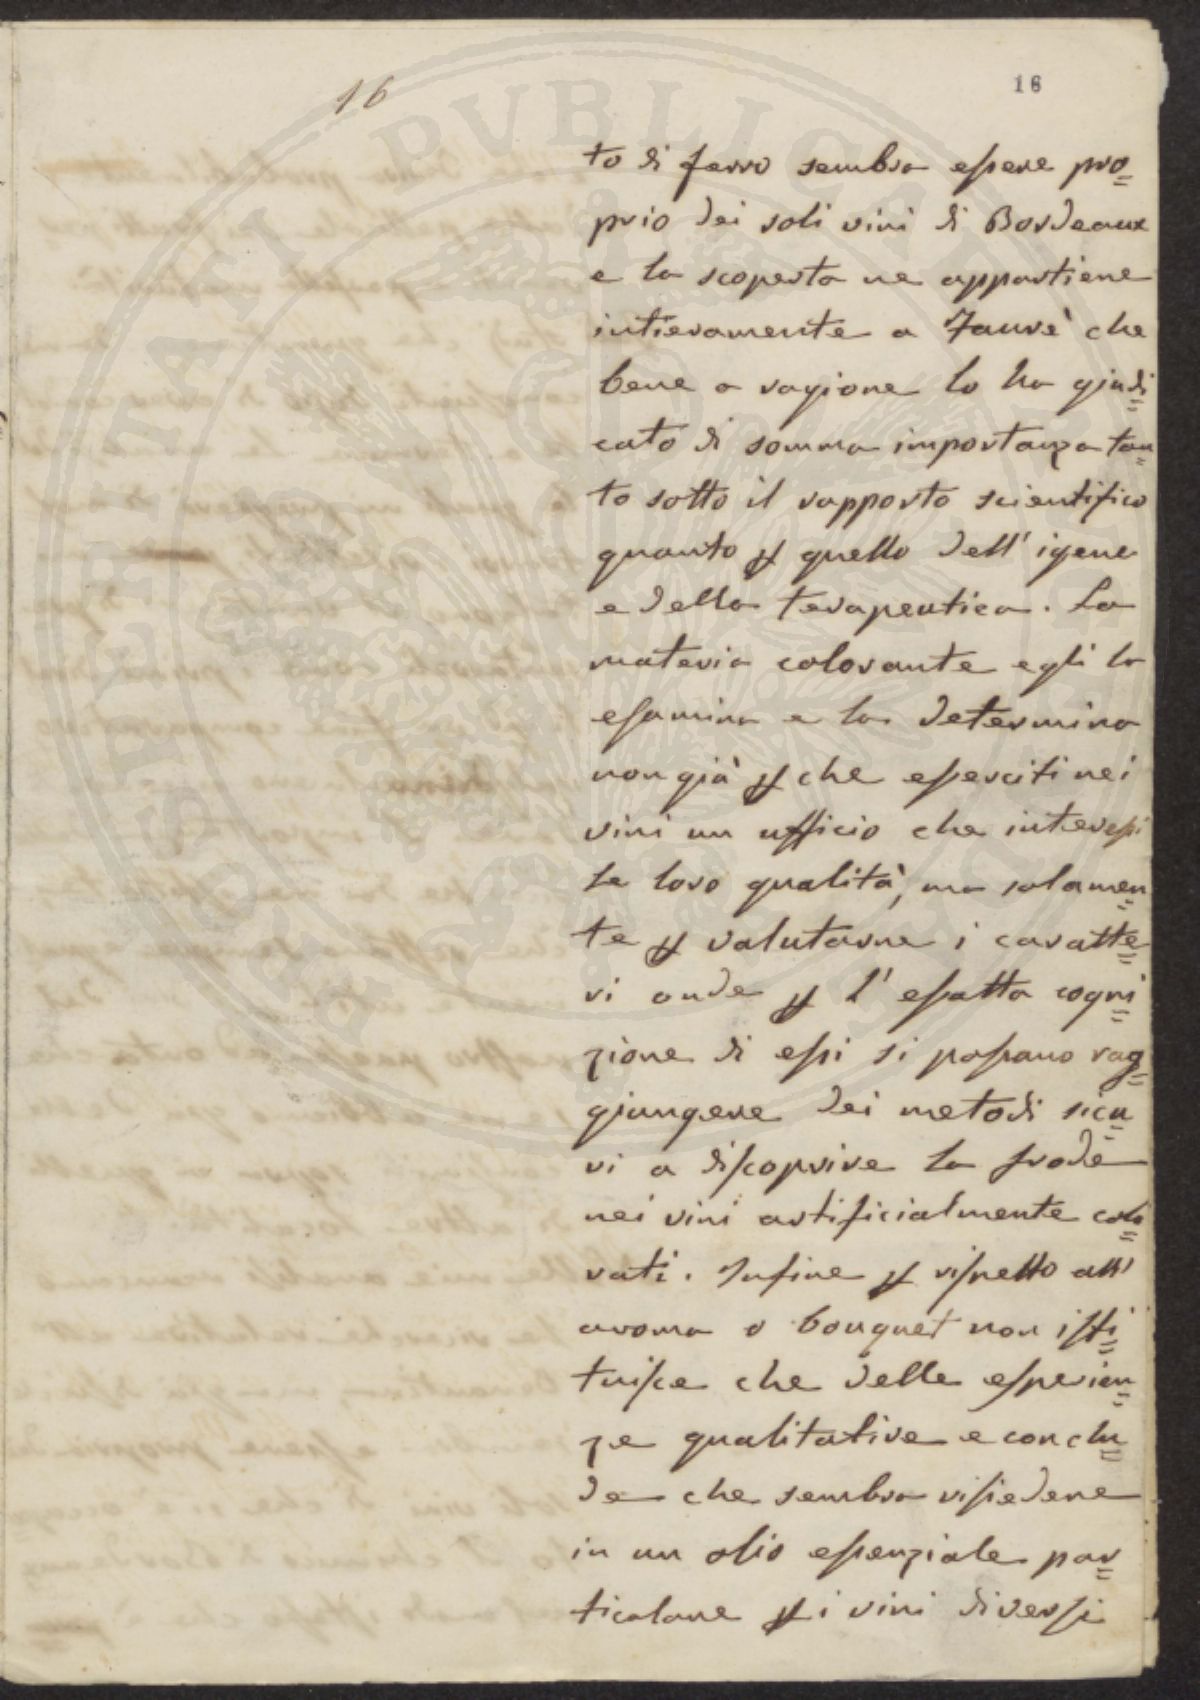 16
16
to di ferro sembra essere pro=
prio dei soli vini di Bordeaux
e la scoperta ne appartiene
intieramente a Faurè che
bene a ragione lo ha giudi=
cato di somma importanza tan=
to sotto il rapporto scientifico
quanto p quello dell' igene
e della terapeutica. La
materia colorante egli la
esamina e la determina
non già p che eserciti nei
vini un ufficio che interessi
le loro qualità, ma solamen=
te p valutarne i caratte=
ri onde p l' esatta cogni=
zione di essi si possano rag=
giungere dei metodi sicu=
ri a discoprire la frode
nei vini artificialmente colo=
rati. Infine p rispetto all'
aroma o bouquet non isti=
tuisce che delle esperien=
ze qualitative e conclu=
de che sembra risiedere
in un olio essenziale par=
ticolare p i vini diversi
PVBLICAE